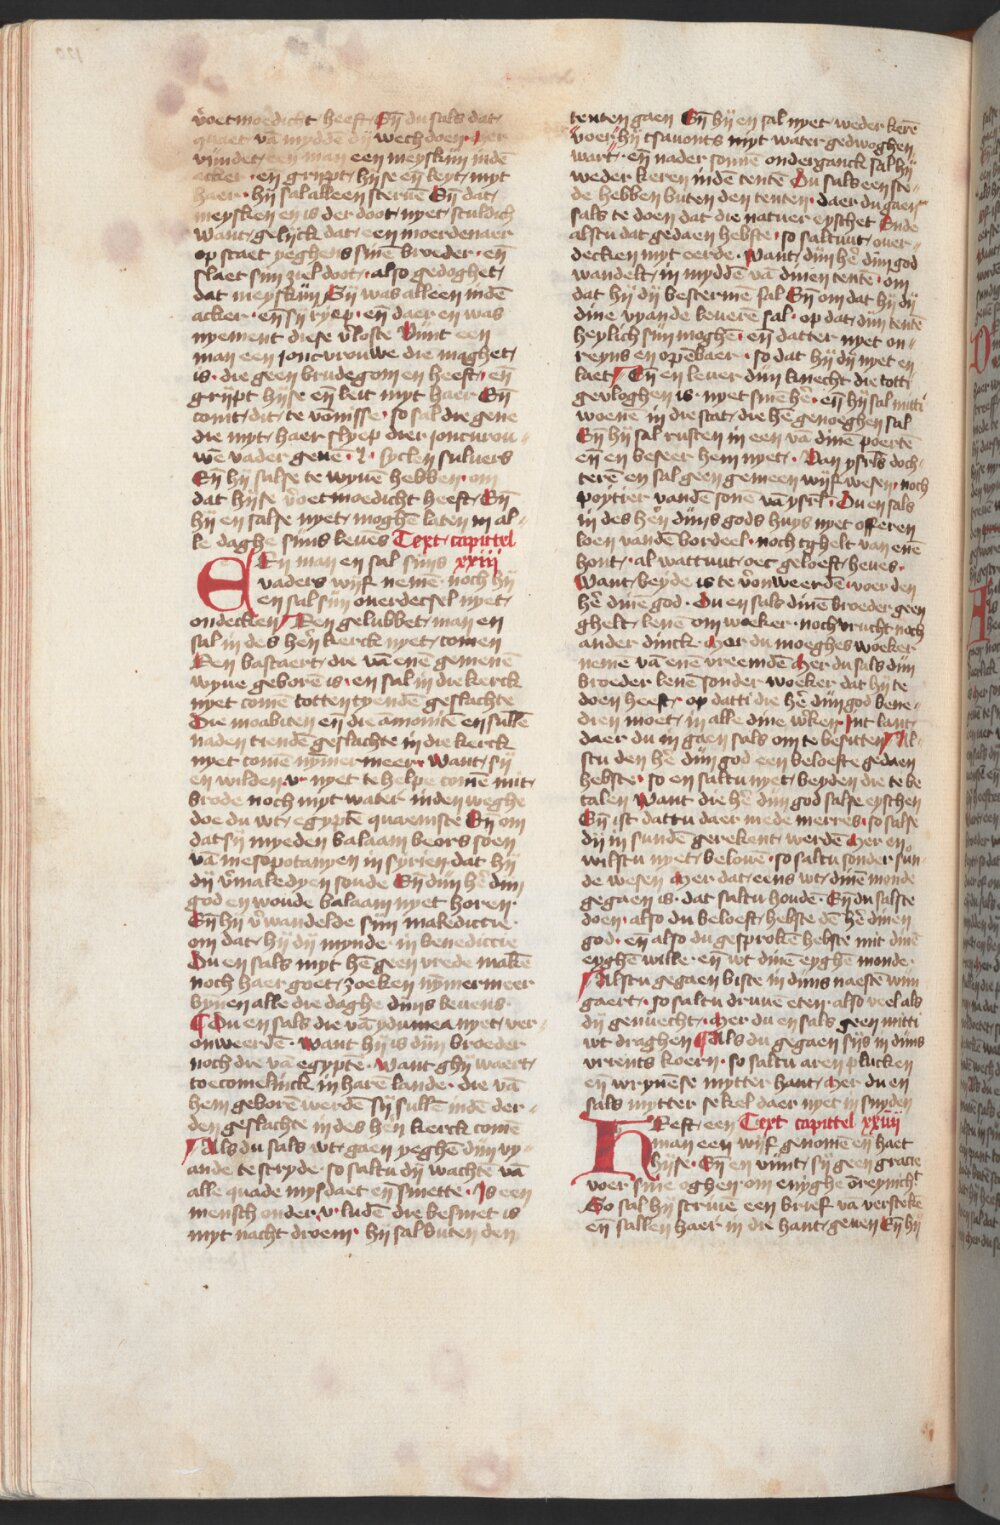 v̊oetmoedicht heeft En̄ du sals dat
quaet vā myddē dij wech doen Mer
vijndet een man een meyskijn indē
acker · en̄ grijpt hijse en̄ leyt myt
haer · hij sal alleen steruē En̄ dat
meysken en is der doot nyet sculdich
Want gelijck dat een moerdenaer
op staet yeghens sinē broeder · en̄
slaet sijn ziel doot · also gedoghet
dat meyskijn Sij was alleen indē
acker · en̄ sij ryep · en̄ daer en was
nyement diese v̊loste Vijnt een
man een joncvrouwe die maghet
is · die geen brudegom en heeft · en̄
grijpt hijse en̄ leit myt haer En̄
comt dit te vōnisse · so sal die gene
die myt haer slyep dier joncvrou
wē vader geuē · l · syclen siluers
En̄ hij salse te wyuē hebben · om
dat hijse v̊oetmoedicht heeft En̄
hij en salse nyet moghē laten in al
le daghe sijns leues Text capittel
xxiij
En man en sal sijns
vaders wijf nemē noch hij
en sal sijn ouerdecsel nyet
ondecken Een gelubbet man en
sal in des hēn kerck nyet comen
Een bastaert die vā enē gemenē
wyue geborē is · en sal in die kerck
nyet comē totten tyendē geslachte
Die moabiten en̄ die amonitē en sullē
naden tiendē geslachte in die kerck
nyet comē nȳmermeer Want sij
en wilden v nyet te helpe comē mit
brode noch myt water inden weghe
doe du wt egyptē quaemste En̄ om
dat sij myeden balaam beors soen
vā mesopotamyen in syrien dat hij
dij v̊maledyen soude En̄ dijn hē dijn
god en woude balaam nyet horen
En̄ hij v̊wandelde sijn maledictie
om dat hij dij mynde in benedictie
Du en sals myt hē geen vrede makē
noch haer goet zoeken nȳmermeer
bynen alle die daghe dijns leuens
Du en sals die vā ydumea nyet ver
onweerdē · Want hij is dijn broeder
noch die vā egyptē · Want ghij waert
toecomelinck in harē lande · die vā
hem geborē werdē sij sullē indē der
den geslachte in des hēn kerck comē
Als du sals wt gaen yeghē dijn vy
ande te stryde · so saltu dij wachtē vā
alle quade mysdaet en̄ smette · Is een
mensch onder v ludē die besmet is
myt nacht droem · hij sal buten den
tenten gaen En̄ hij en sal nyet weder kerē
voer hij tsauonts myt water gedwoghen
wart · en̄ nader sonnē onderganck sal hij
weder keren indē tentē Du sals een ste
de hebben buten den tenten · daer du gaen
sals te doen dat die natuer eyschet Ende
alstu dat gedaen hebste · so saltuut ouer
decken myt eerde · Want dijn hē dijn god
wandelt in myddē vā dinen tentē · om
dat hij dij bestermē sal En̄ om dat hij dij
dine vyande leuerē sal · op dat dijn tentē
heylich sijn moghē · en̄ datter nyet on
reyns en openbaer · so dat hij dij nyet en
laet En̄ en leuer dijn knecht die totti
gevloghen is · nyet sinē hē · en̄ hij sal mitti
wonē in die stat die hē genoeghen sal
En̄ hij sal rusten in een vā dinē poertē
en̄ en beseer hem nyet · Van ysrl̄s doch
terē en sal geen gemeen wijf wesen · noch
poytier vandē sonē vā ysrl̄ · Du en sals
in des hēn dijns gods huys nyet offeren
loen vandē bordeel · noch tghelt van enē
hont · al wattuut oec geloeft heues ·
Want beyde is te v̊onweerdē · voer den
hē dinē god · Du en sals dinē broeder geen
ghelt lenē om woeker · noch vrucht noch
ander dinck Mer du moeghes woeker
nemē vā enē vreemdē Mer du sals dijn
broeder lenē sonder woeker dat hij te
doen heeft · op datti die hē dijn god bene
dien moet in alle dinē ẘken Int lant
daer du in gaen sals om te besitten Al
stu den hē dijn god een beloefte gedaen
hebste · so en saltu nyet beyden die te be
talen Want die hē dijn god salse eyschen
En̄ ist dattu daer mede merres · so salse
dij in sundē gerekent werdē Mer en
wilstu nyet belouē · so saltu sonder sun
de wesen Mer dat eens wt dinē monde
gegaen is · dat saltu houdē · En̄ du salste
doen · also du beloeft hebste dē hē dinen
god · en̄ also du gesprokē hebste mit dinē
eyghē wille · en̄ wt dinē eyghē monde ·
Alstu gegaen biste in dijns naestē wijn
gaert · so saltu druuē eten · also veel als
dij genuecht · Mer du en sals geen mitti
wt draghen Als du gegaen sijs in dijns
vrients koern · so saltu aren plucken
en wrynēse mytter hant Mer du en
sals mytter sekel daer nyet in snyden
Text capittel xxiiij
Heeft een
man een wijf genomē en̄ haet
hijse · En̄ en vijnt sij geen gracie
voer sinē oghen om enyghe ōreynicht
So sal hij scriuē een brief vā verstekē
en̄ sallen haer in die hant geuen En̄ hij